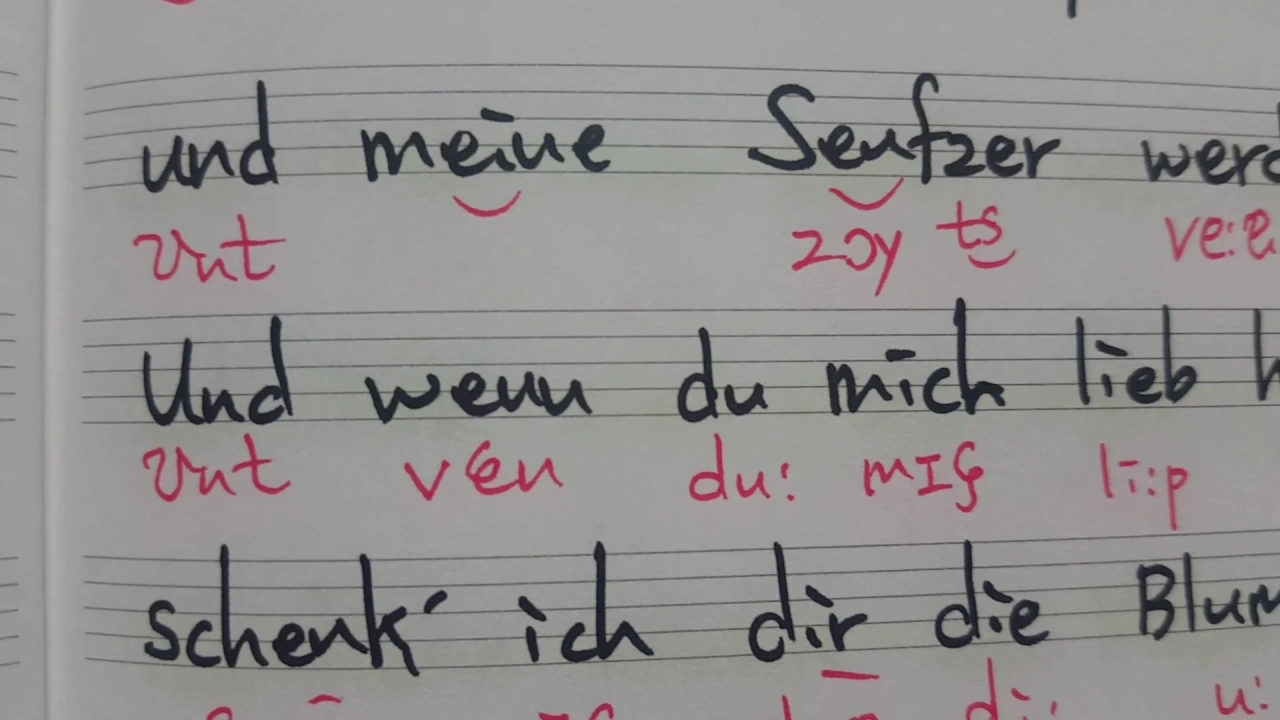 und meine Seufzer
ʊnt zɔy ts
Und wenn du mich lieb
ʊnt vɛn du: mɪç li:p
schenk' ich dir die
di: u: